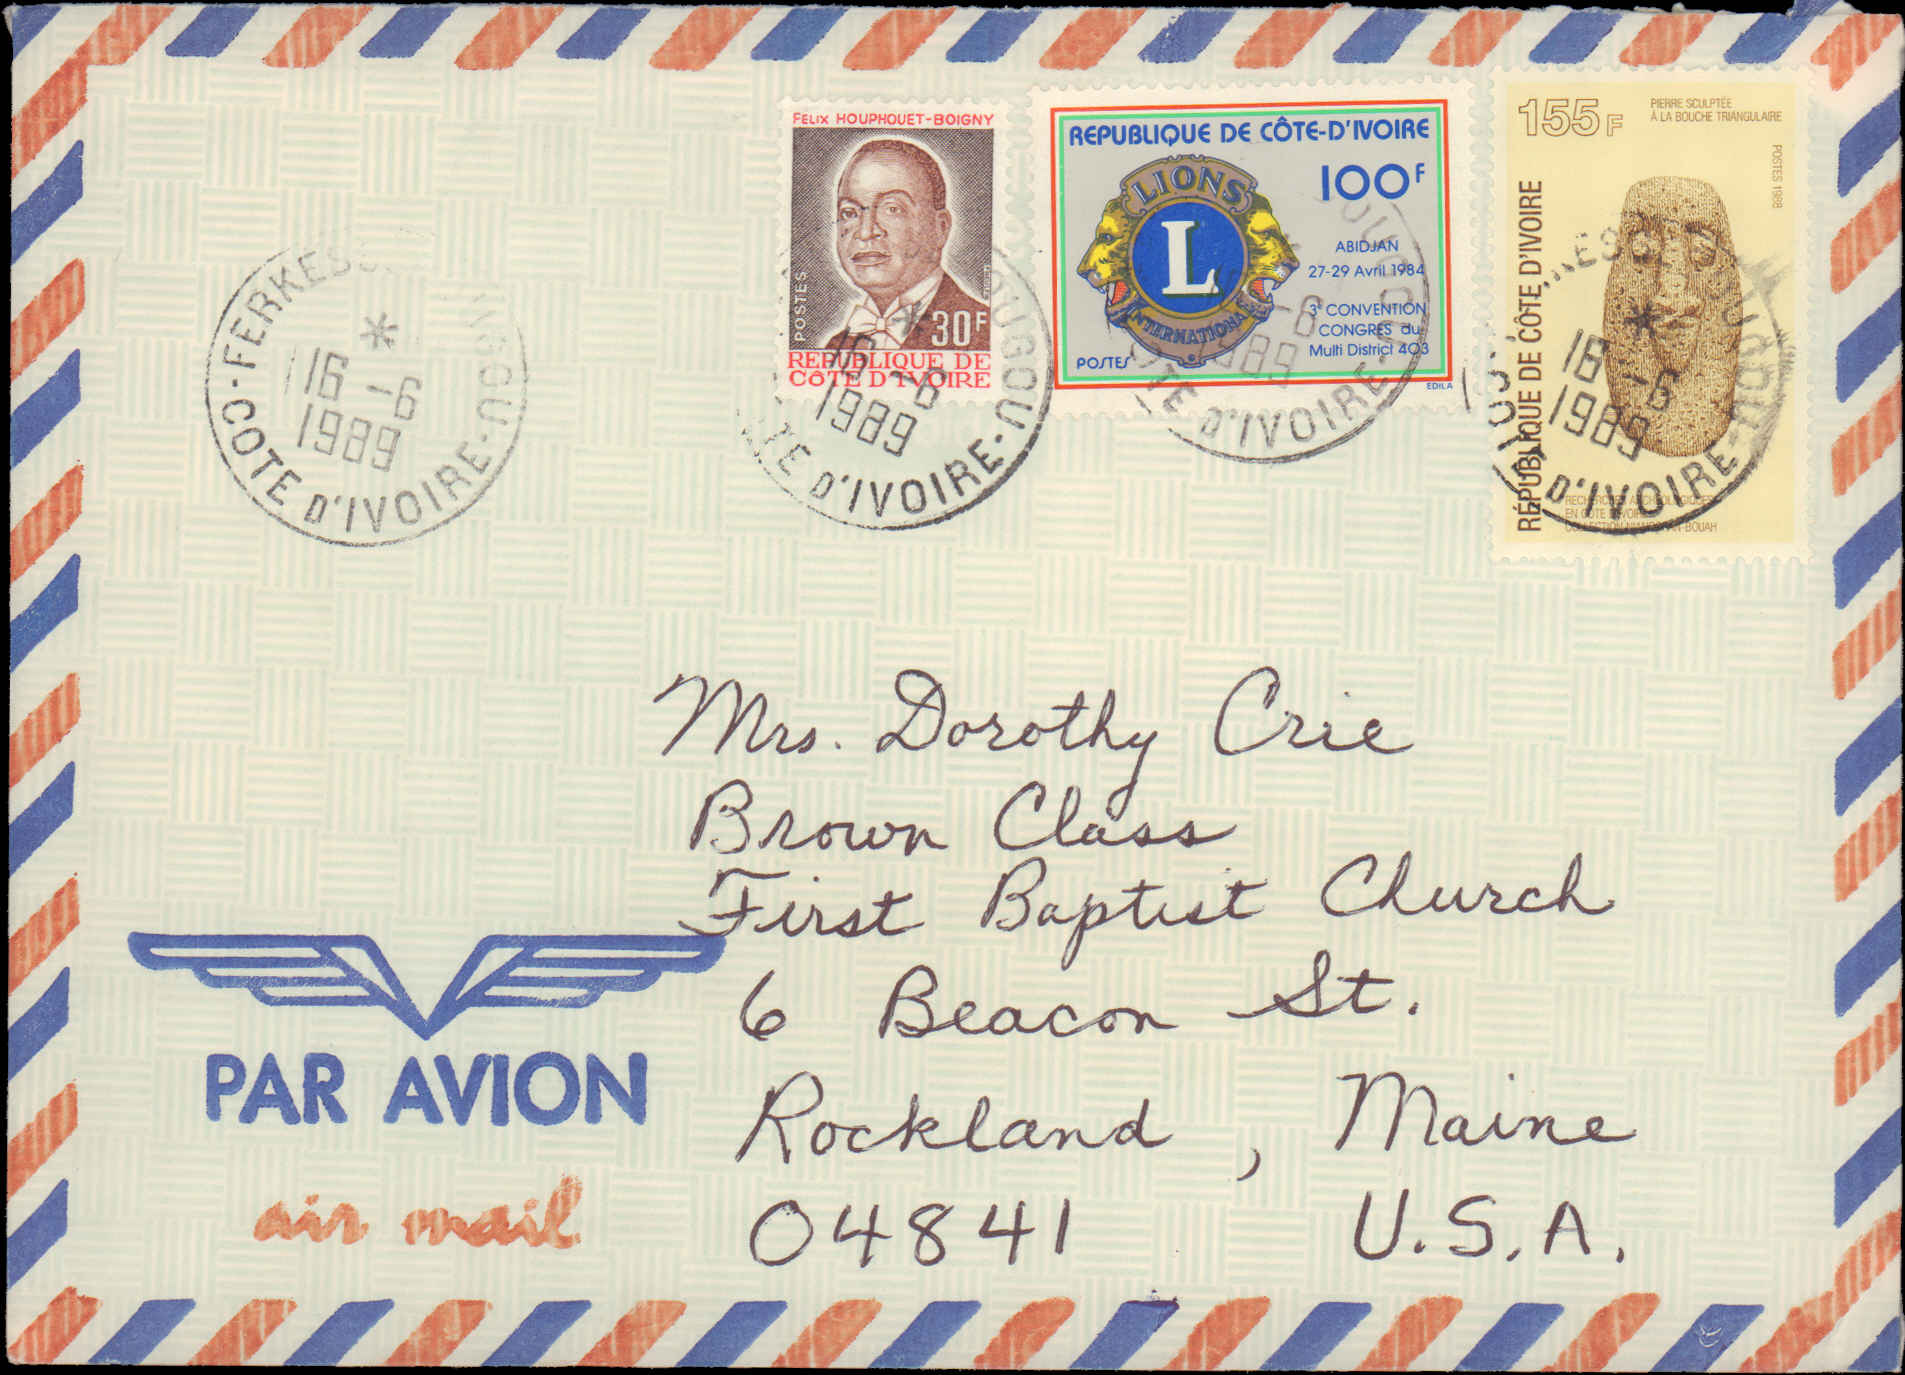 FELIX HOUPHOUET-BOIGNY
POSTES
30F
REPUBLIQUE DE
CÔTE D'IVOIRE
REPUBLIQUE DE CÔTE-D'IVOIRE
100F
LIONS
L
INTERNATIONAL
ABIDJAN
27-29 Avril 1984
3e CONVENTION
CONGRES du
Multi District 403
POSTES
EDILA
155F
PIERRE SCULPTÉE
À LA BOUCHE TRIANGULAIRE
POSTES 1988
RÉPUBLIQUE DE CÔTE D'IVOIRE
RECHERCHES ARCHÉOLOGIQUES
EN CÔTE D'IVOIRE
COLLECTION
BOUAH
COTE D'IVOIRE
16 -6
1989
OUGOU
TE D'IVOIRE
16 -6
1989
-6
1989
OTE D'IVOIRE
16 -6
1989
D'IVOIRE
Mrs. Dorothy Crie
Brown Class
First Baptist Church
6 Beacon St.
Rockland, Maine
04841 U.S.A.
PAR AVION
air mail